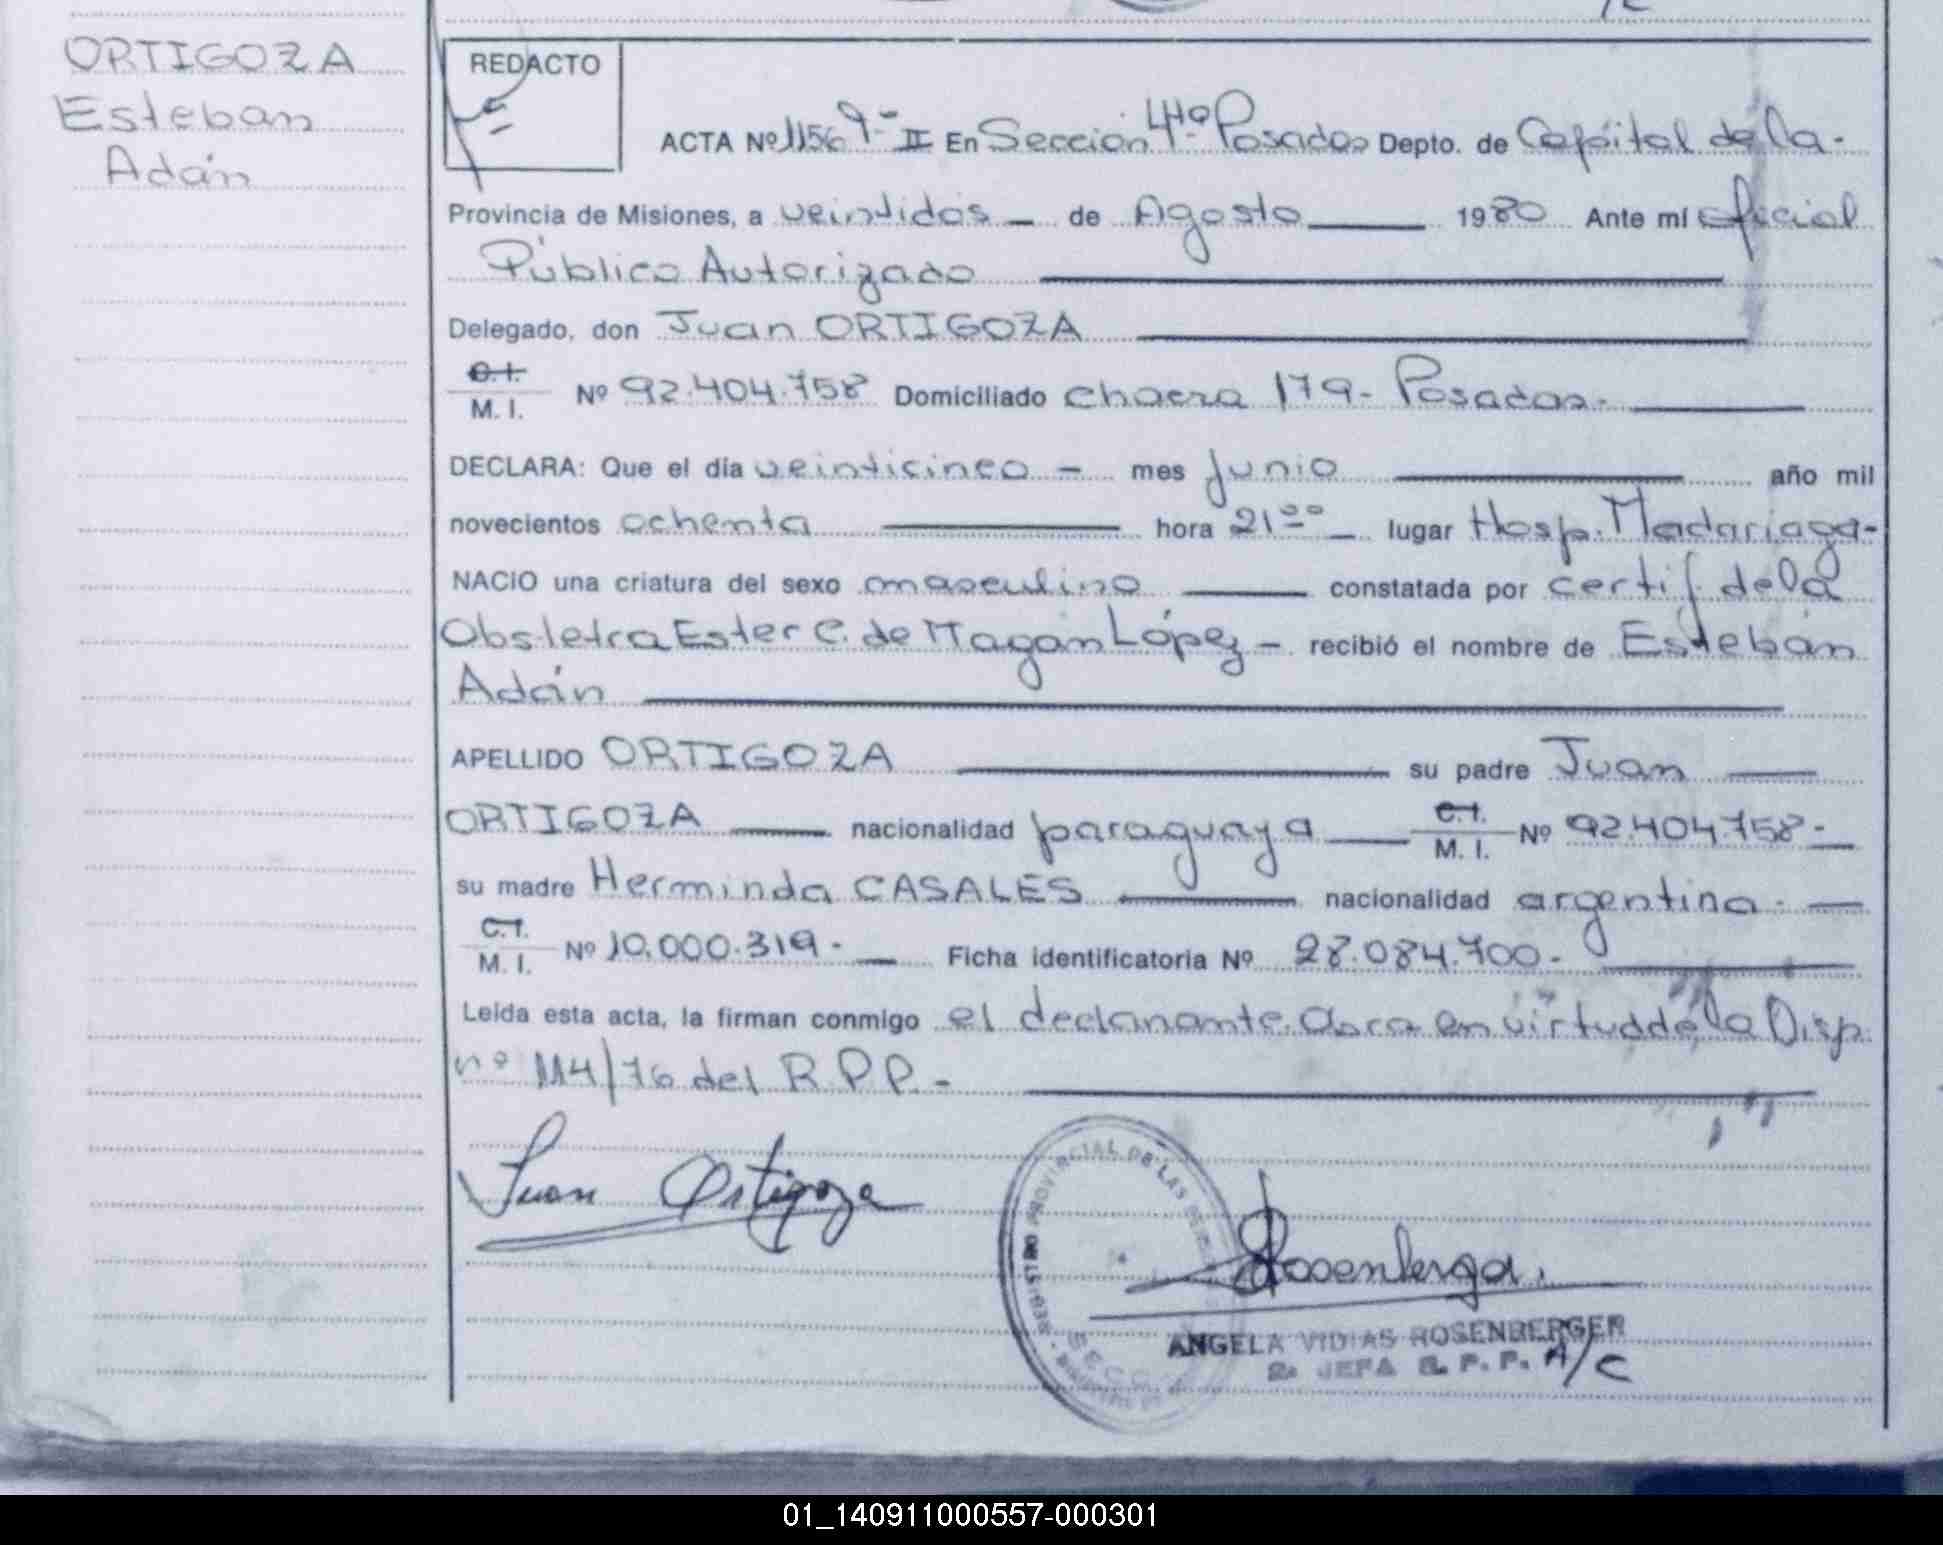 ORTIGOZA
Esteban
Adán
REDACTO
ACTA Nº 1156 Tº II En Sección 4ta Posadas Depto. de Capital de la-
Provincia de Misiones, a veintidos - de Agosto 1980 Ante mí oficial
Público Autorizado
Delegado, don Juan ORTIGOZA
C.I.
M. I. Nº 92.404.758 Domiciliado chacra 179- Posadas-
DECLARA: Que el día veinticinco - mes Junio año mil
novecientos ochenta hora 21⁰⁰ lugar Hosp. Madariaga-
NACIO una criatura del sexo masculino constatada por certif. de la
Obstetra Ester C. de Magan López - recibió el nombre de Esteban
Adán
APELLIDO ORTIGOZA su padre Juan
ORTIGOZA nacionalidad paraguaya C.I. M. I. Nº 92.404.758-
su madre Herminda CASALES nacionalidad argentina-
C.I.
M. I. Nº 10.000.319- Ficha identificatoria Nº 28.084.700-
Leída esta acta, la firman conmigo el declarante. en virtud de la Disp.
nº 114/76 del R.P.P.-
Juan Ortigoza
REGISTRO PROVINCIAL DE LAS
SECC
Rosenberger
ANGELA VIDIAS ROSENBERGER
2a JEFA R. P. P. A/C
01_140911000557-000301